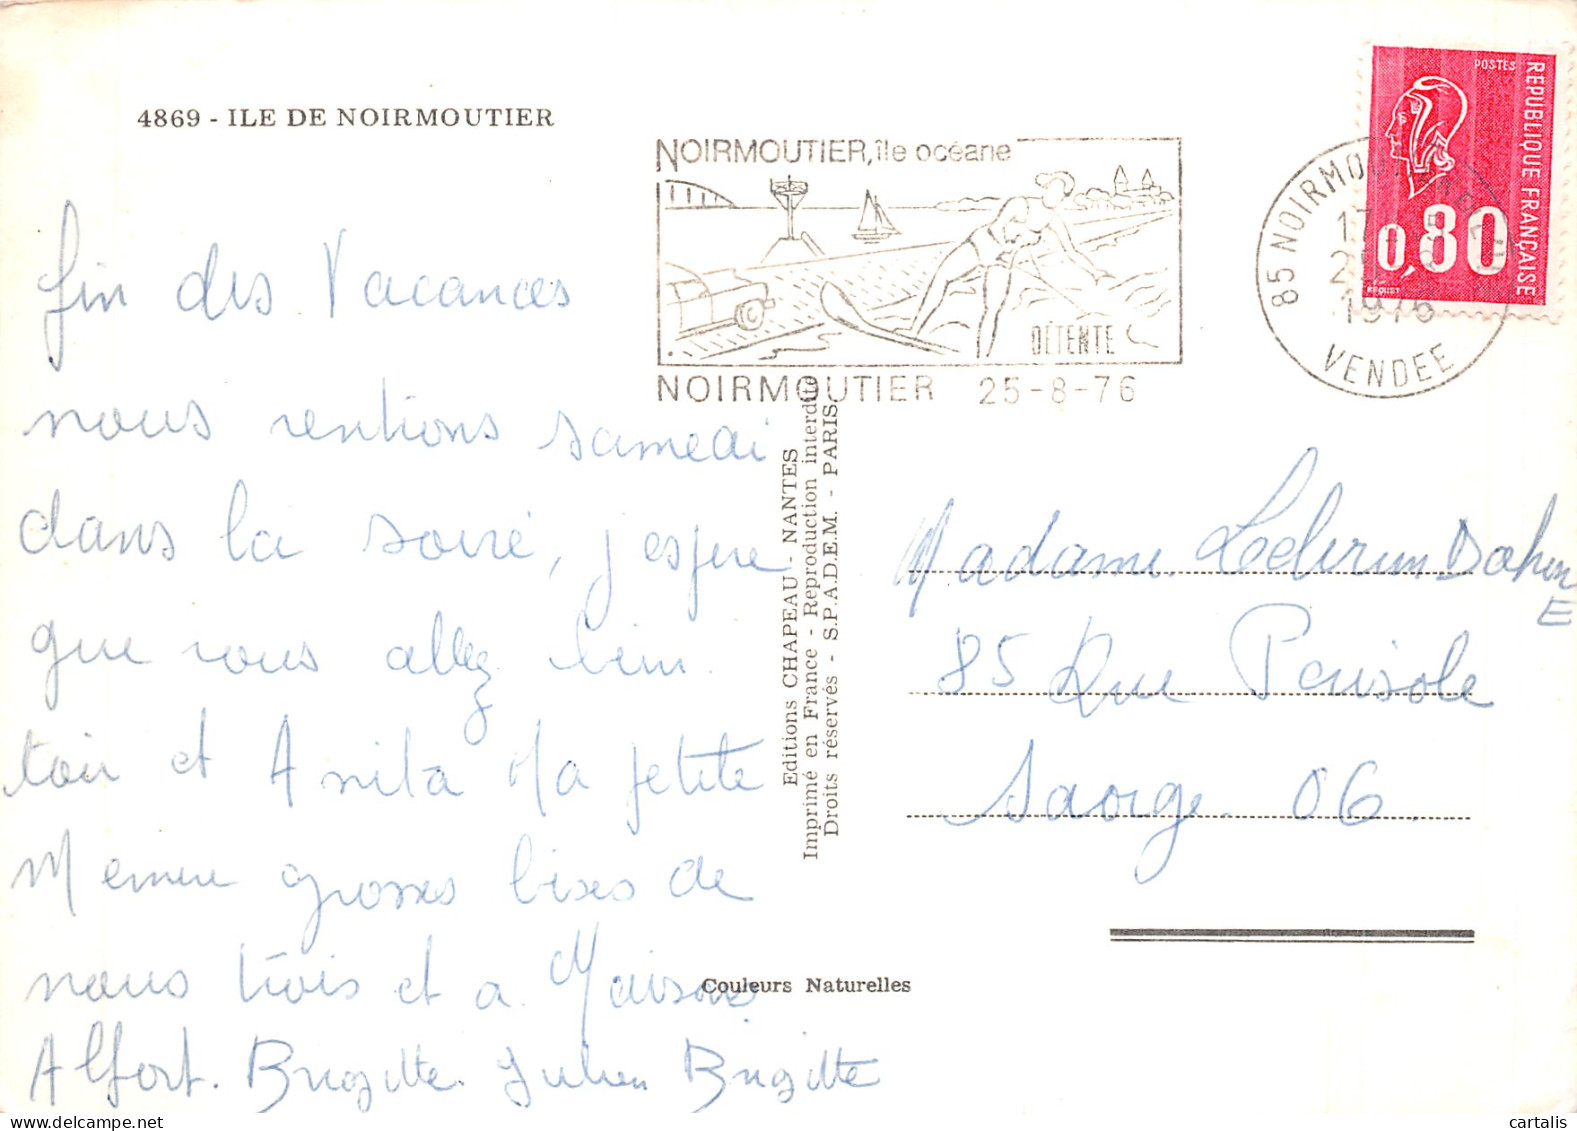 4869 - ILE DE NOIRMOUTIER
NOIRMOUTIER, île océane
DÉTENTE
NOIRMOUTIER 25-8-76
85 NOIRMOUTIER
1976
VENDEE
POSTES
REPUBLIQUE FRANÇAISE
0,80
BEQUET
fin des Vacances
nous rentions samedi
dans la soiré, j espere
que vous allez bien
toi et Anita Ma petite
Memere grosses bises de
nous trois et a Maisons
Alfort. Brigitte. Julien Brigitte
Editions CHAPEAU - NANTES
Imprimé en France - Reproduction interdite
Droits réservés - S.P.A.D.E.M. - PARIS
Madame
E
85 Rue Penisole
Saorge. 06.
Couleurs Naturelles
cartalis